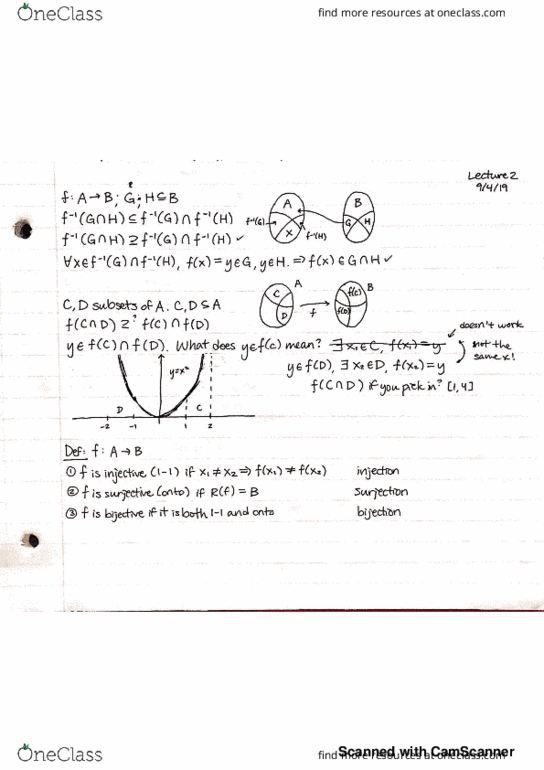 OneClass
find more resources at oneclass.com
Lecture 2
9/4/19
f: A→B; G, H⊆B
A
B
f⁻¹(G∩H) ⊆ f⁻¹(G) ∩ f⁻¹(H)
f⁻¹(G)
X
f⁻¹(H)
G
H
f⁻¹(G∩H) ⊇ f⁻¹(G) ∩ f⁻¹(H) ✓
∀x∈f⁻¹(G)∩f⁻¹(H), f(x)=y∈G, y∈H. ⇒ f(x)∈G∩H ✓
C, D subsets of A. C, D⊆A
C
D
A
f
f(C)
f(D)
B
f(C∩D) ⊇? f(C)∩f(D)
doesn't work
y∈f(C)∩f(D). What does y∈f(C) mean? ∃x₁∈C, f(x₁)=y
not the
same x!
y∈f(D), ∃x₂∈D, f(x₂)=y
f(C∩D) if you pick in? [1,4]
y=x²
D
C
-2 -1 1 2
Def: f: A→B
① f is injective (1-1) if x₁≠x₂ ⇒ f(x₁)≠f(x₂) injection
② f is surjective (onto) if R(f)=B surjection
③ f is bijective if it is both 1-1 and onto bijection
OneClass
find more resources at oneclass.com
Scanned with CamScanner